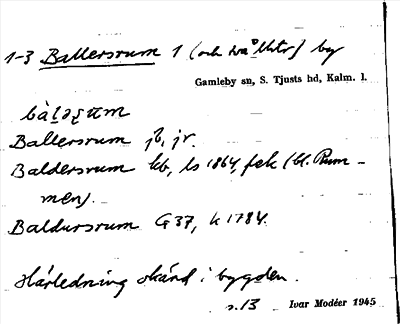 1-3 Ballersrum 1 (och två lhtr) by
Gamleby sn, S. Tjusts hd, Kalm. l.
Ballersrum jb, jr.
Baldersrum kb, ls 1864, fsk (bl. Rum-
men).
Baldursrum G 37, k 1784.
Härledning okänd i bygden.
s. 13 Ivar Modéer 1945